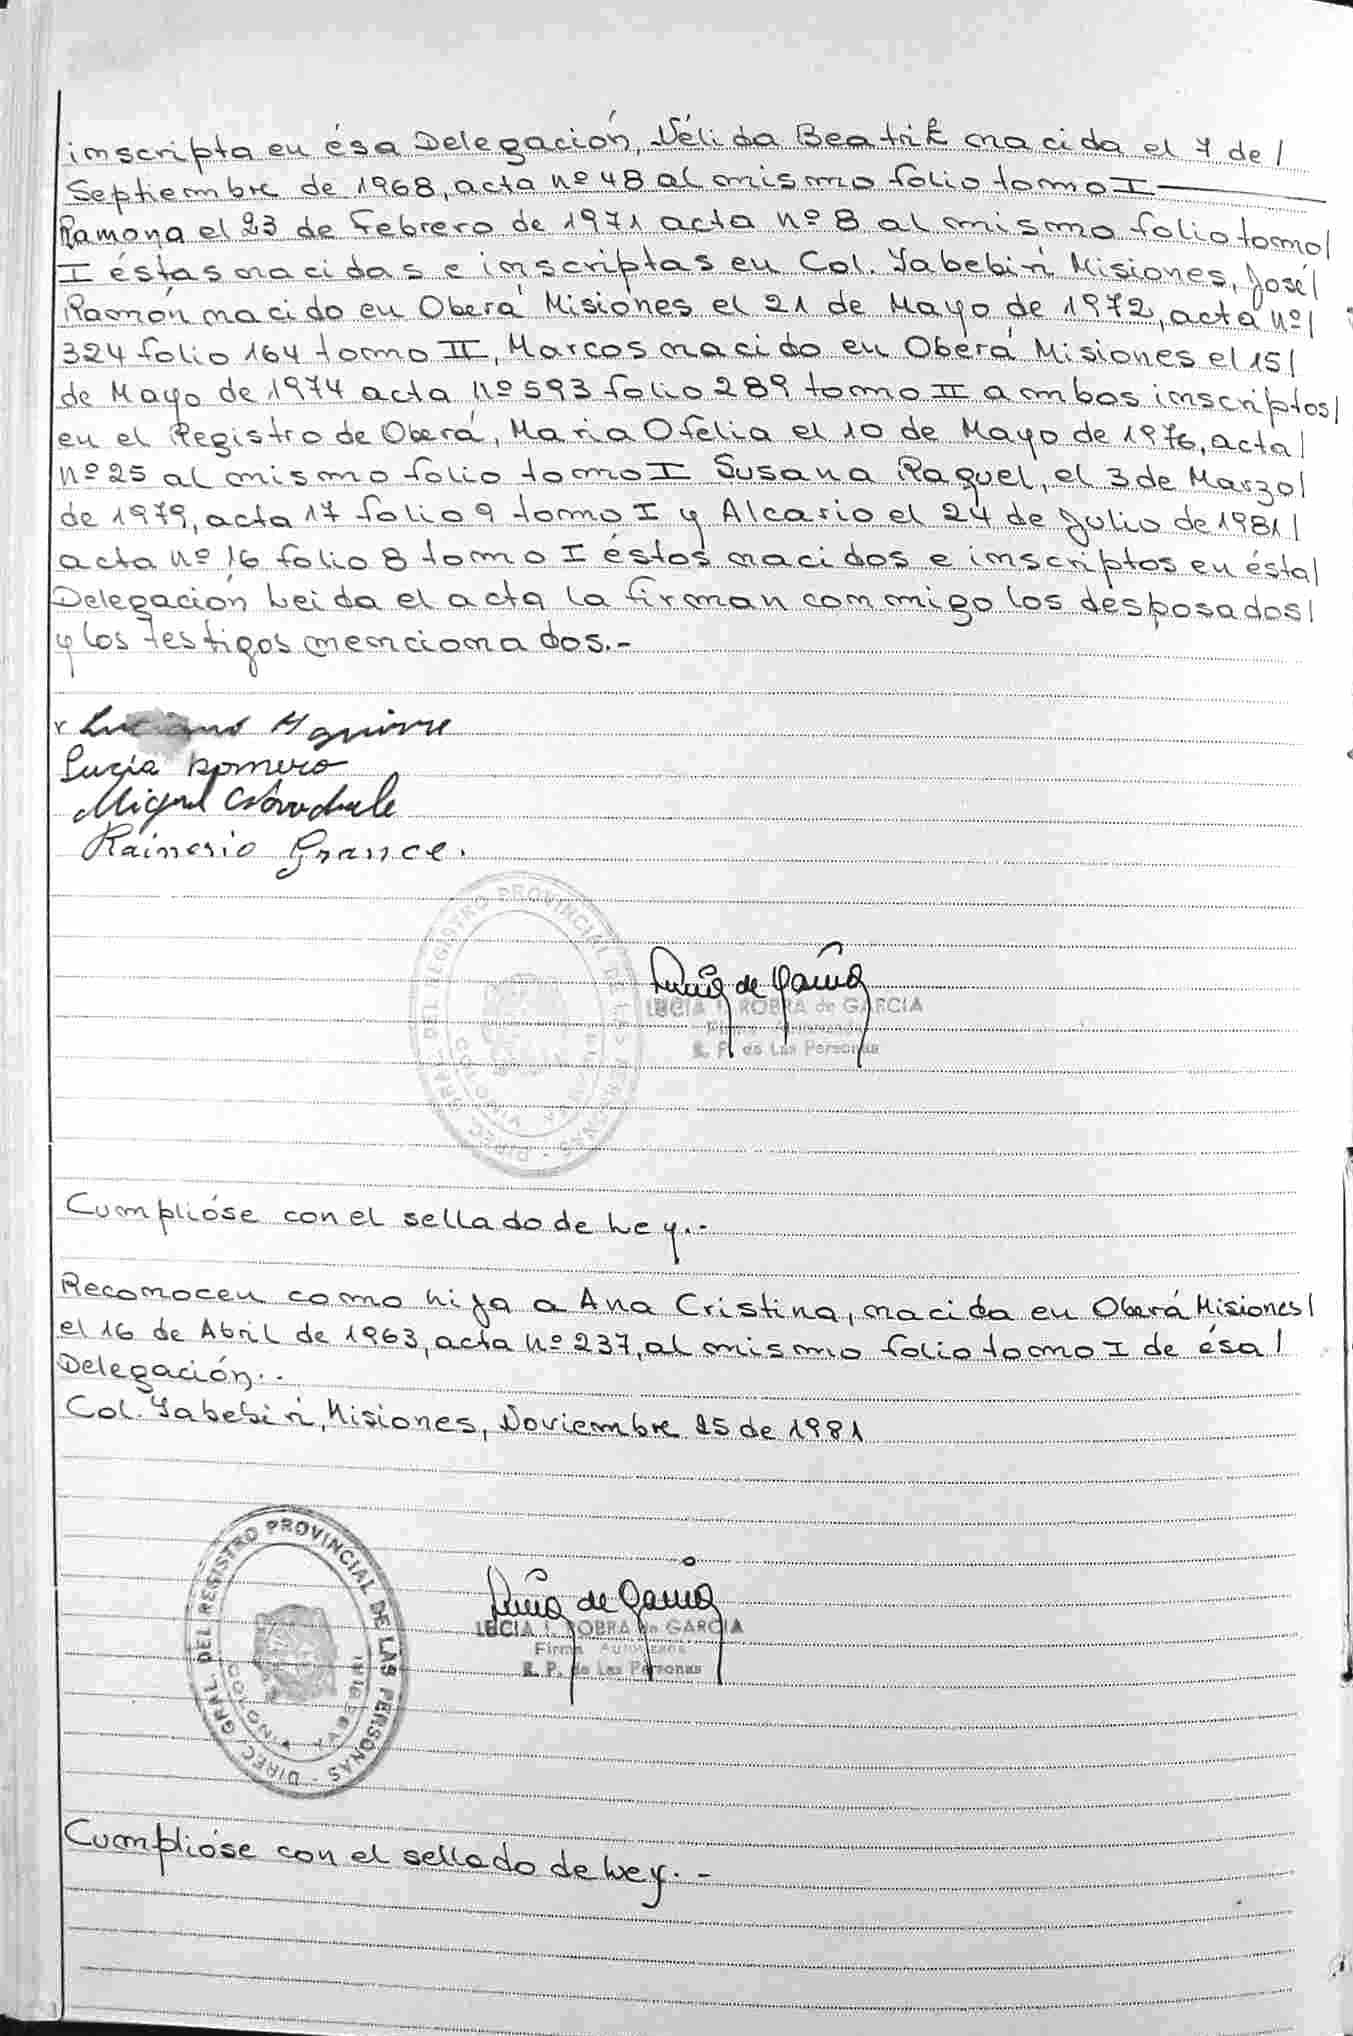 inscripta en ésa Delegación, Nélida Beatriz nacida el 7 de/
Septiembre de 1968, acta nº 48 al mismo folio tomo I
Ramona el 23 de Febrero de 1971 acta nº 8 al mismo folio tomo/
I éstas nacidas e inscriptas en Col. Yabebirí Misiones, José/
Ramón nacido en Oberá Misiones el 21 de Mayo de 1972, acta nº/
324 folio 164 tomo II, Marcos nacido en Oberá Misiones el 15/
de Mayo de 1974 acta nº 593 folio 289 tomo II ambos inscriptos/
en el Registro de Oberá, Maria Ofelia el 10 de Mayo de 1976, acta/
nº 25 al mismo folio tomo I Susana Raquel, el 3 de Marzo/
de 1979, acta 17 folio 9 tomo I y Alcario el 24 de Julio de 1981/
acta nº 16 folio 8 tomo I éstos nacidos e inscriptos en ésta/
Delegación Leida el acta la firman conmigo los desposados/
y los testigos mencionados.-
Aguirre
Lucia Romero
Miguel
Rainerio Grance.
DIREC. GRAL. DEL REGISTRO PROVINCIAL DE LAS PERSONAS
de García
ROBRA de GARCIA
Firma Autorizada
R. P. de Las Personas
Cumplióse con el sellado de Ley.-
Reconocen como hija a Ana Cristina, nacida en Oberá Misiones/
el 16 de Abril de 1963, acta nº 237, al mismo folio tomo I de ésa/
Delegación.-
Col. Yabebirí, Misiones, Noviembre 25 de 1981
DIREC. GRAL. DEL REGISTRO PROVINCIAL DE LAS PERSONAS
de García
ROBRA de GARCIA
Firma Autorizada
R. P. de Las Personas
Cumplióse con el sellado de Ley.-